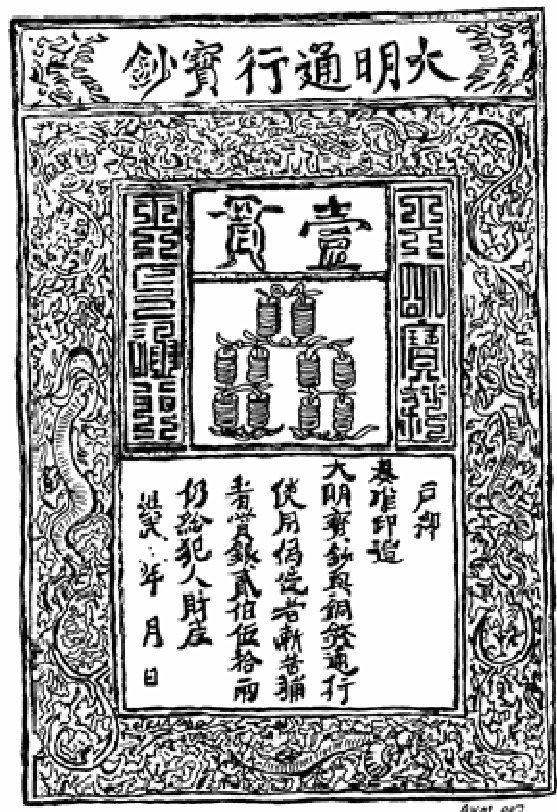 大明通行寶鈔
壹貫
大明寶鈔
戶部
奏准印造
大明寶鈔與銅錢通行
使用偽造者斬告捕
者賞銀貳佰伍拾兩
仍給犯人財產
洪武 年 月 日